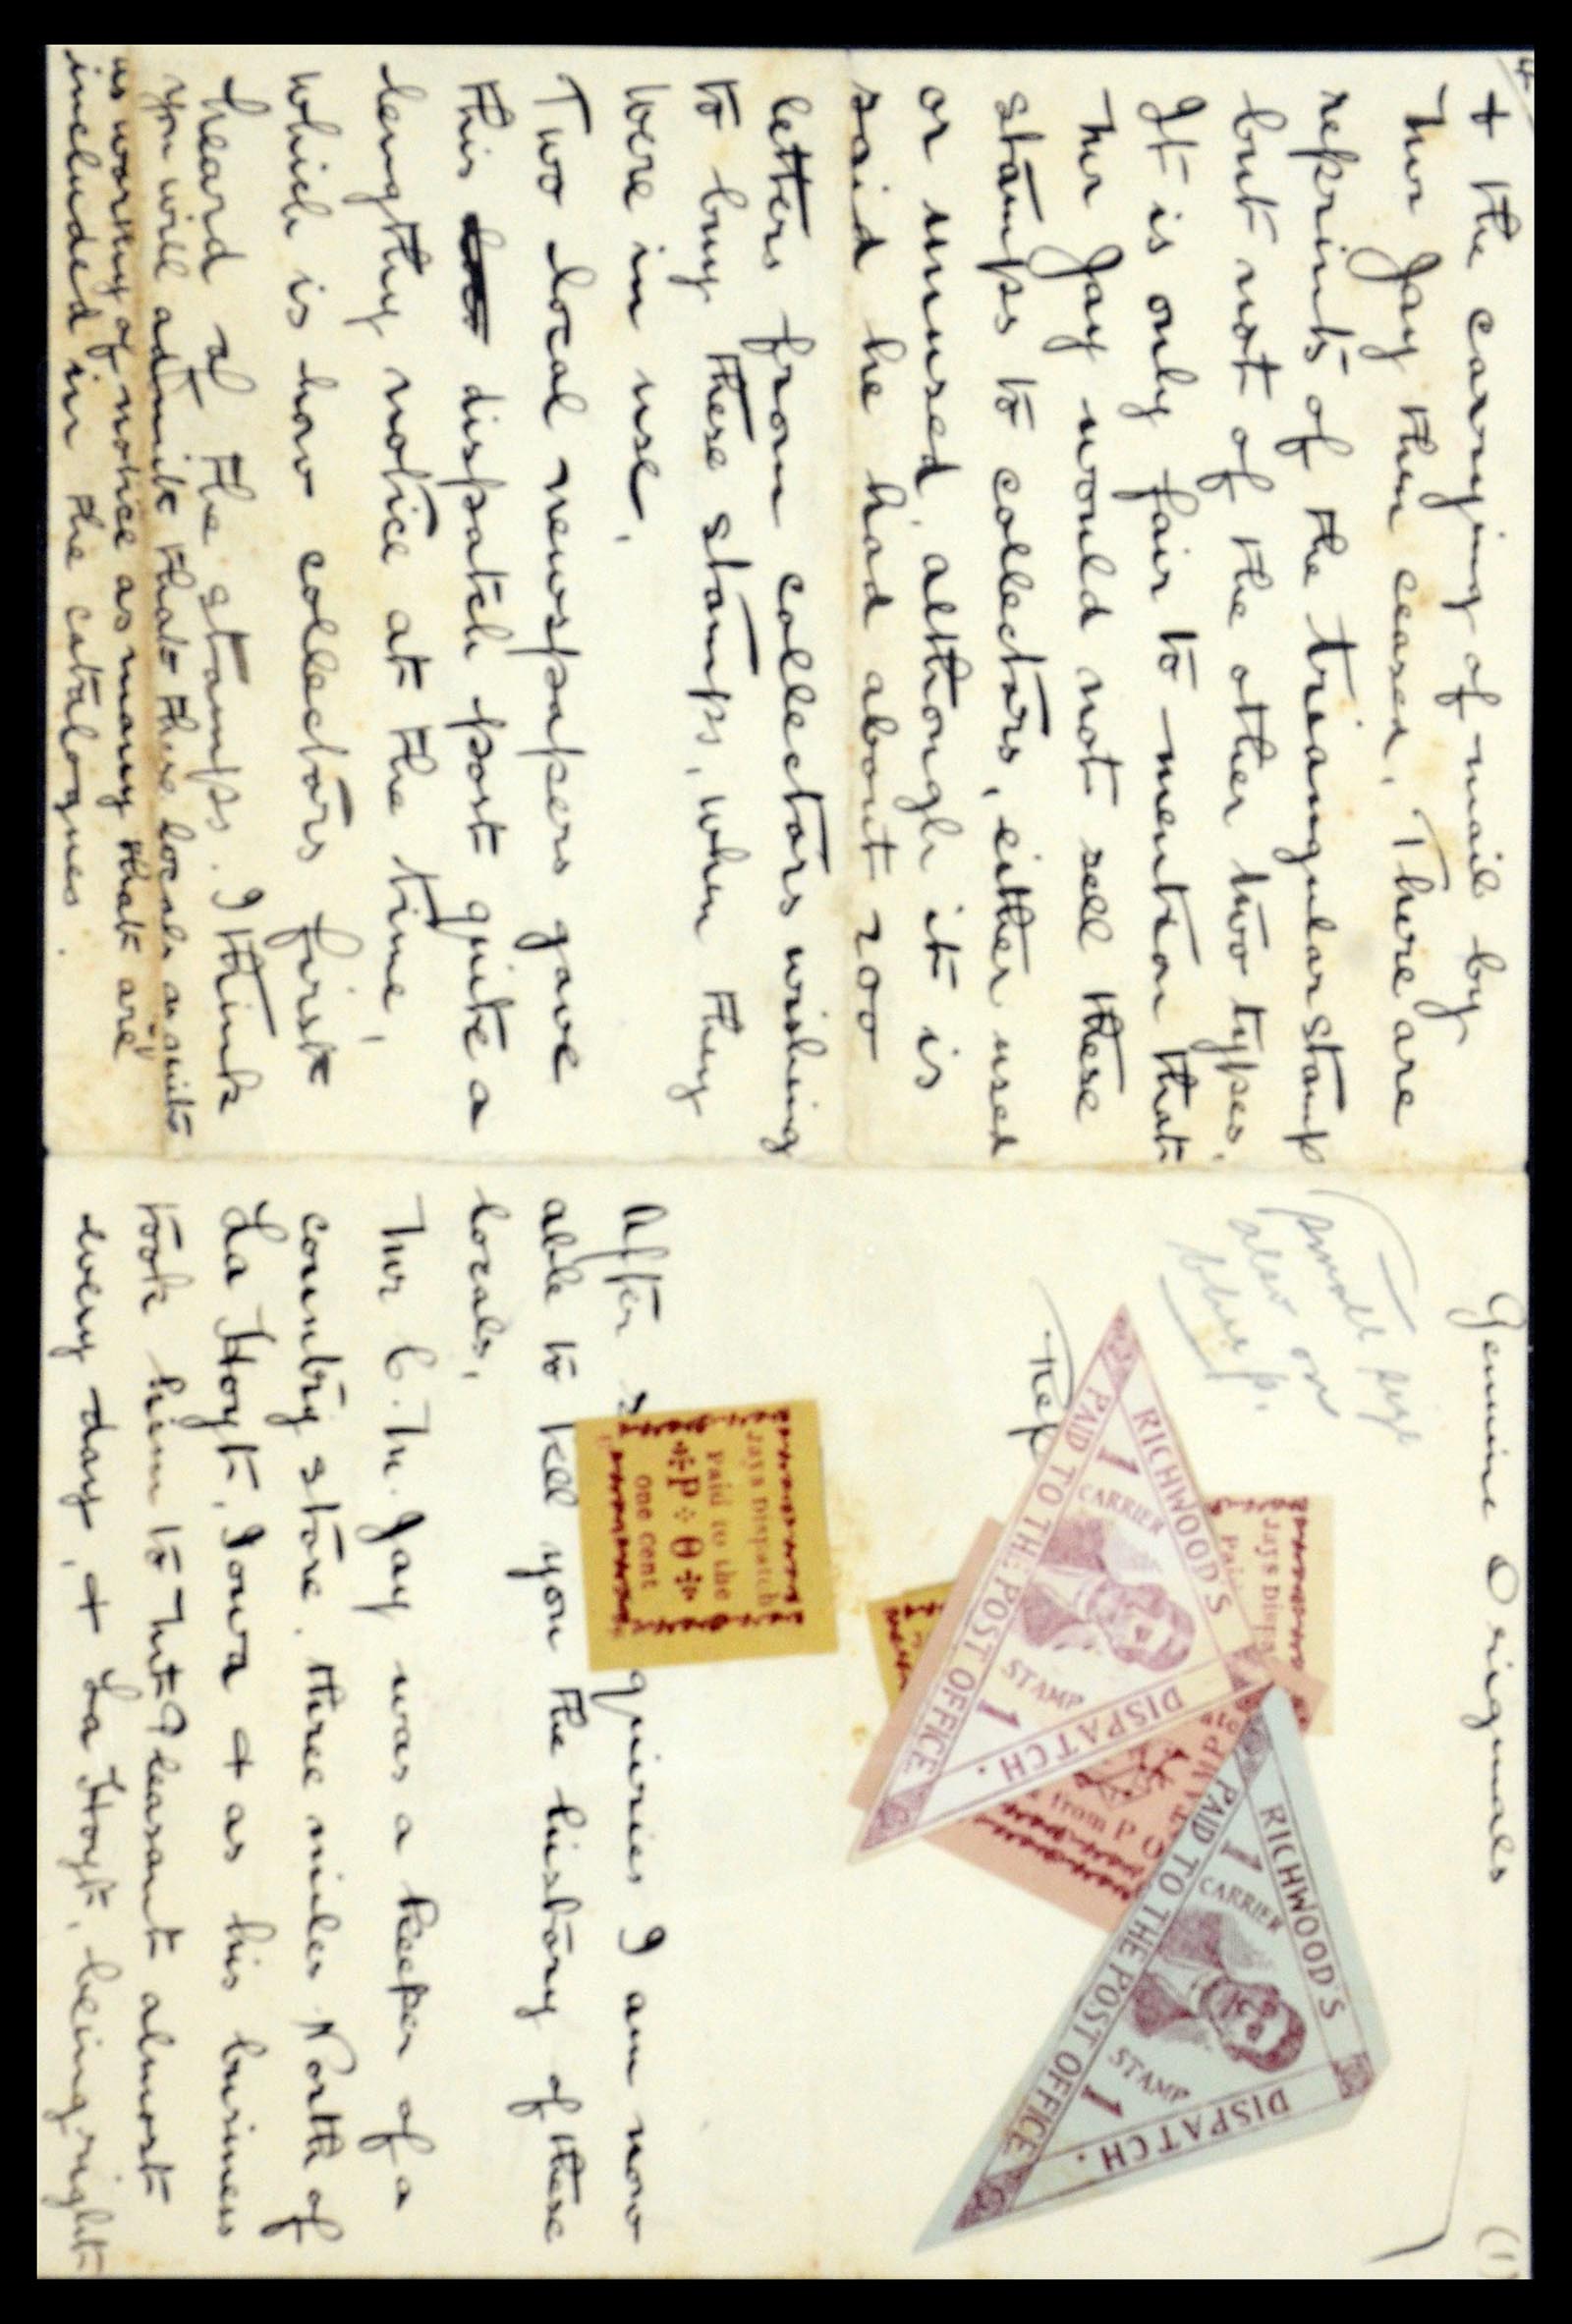 4
+ the carrying of mail by
Mr Jay then ceased. There are
reprints of the triangular stamp
but not of the other two types.
It is only fair to mention that
Mr Jay would not sell these
stamps to collectors, either used
or unused, although it is
said he had about 200
letters from collectors wishing
to buy these stamps, when they
were in use.
Two local newspapers gave
this dispatch post quite a
lengthy notice at the time,
which is how collectors first
heard of the stamps. I think
you will admit that these locals a quite
as worthy of notice as many that are
included in the catalogues.
(1)
Genuine Originals
small
also on
blue p.
Rep
Jays Dispa
Paid
RICHWOOD'S
DISPATCH.
PAID TO THE POST OFFICE
1 CARRIER STAMP 1
STAMP
from P O
RICHWOOD'S
DISPATCH.
PAID TO THE POST OFFICE
1 CARRIER STAMP 1
Jays Dispatch
Paid to the
P O
one cent
After quiries I am now
able to tell you the history of these
locals.
Mr C. M. Jay was a keeper of a
country store, three miles North of
La Hoyt, Iowa + as his business
took him to Mt Pleasant almost
every day, + La Hoyt, being right